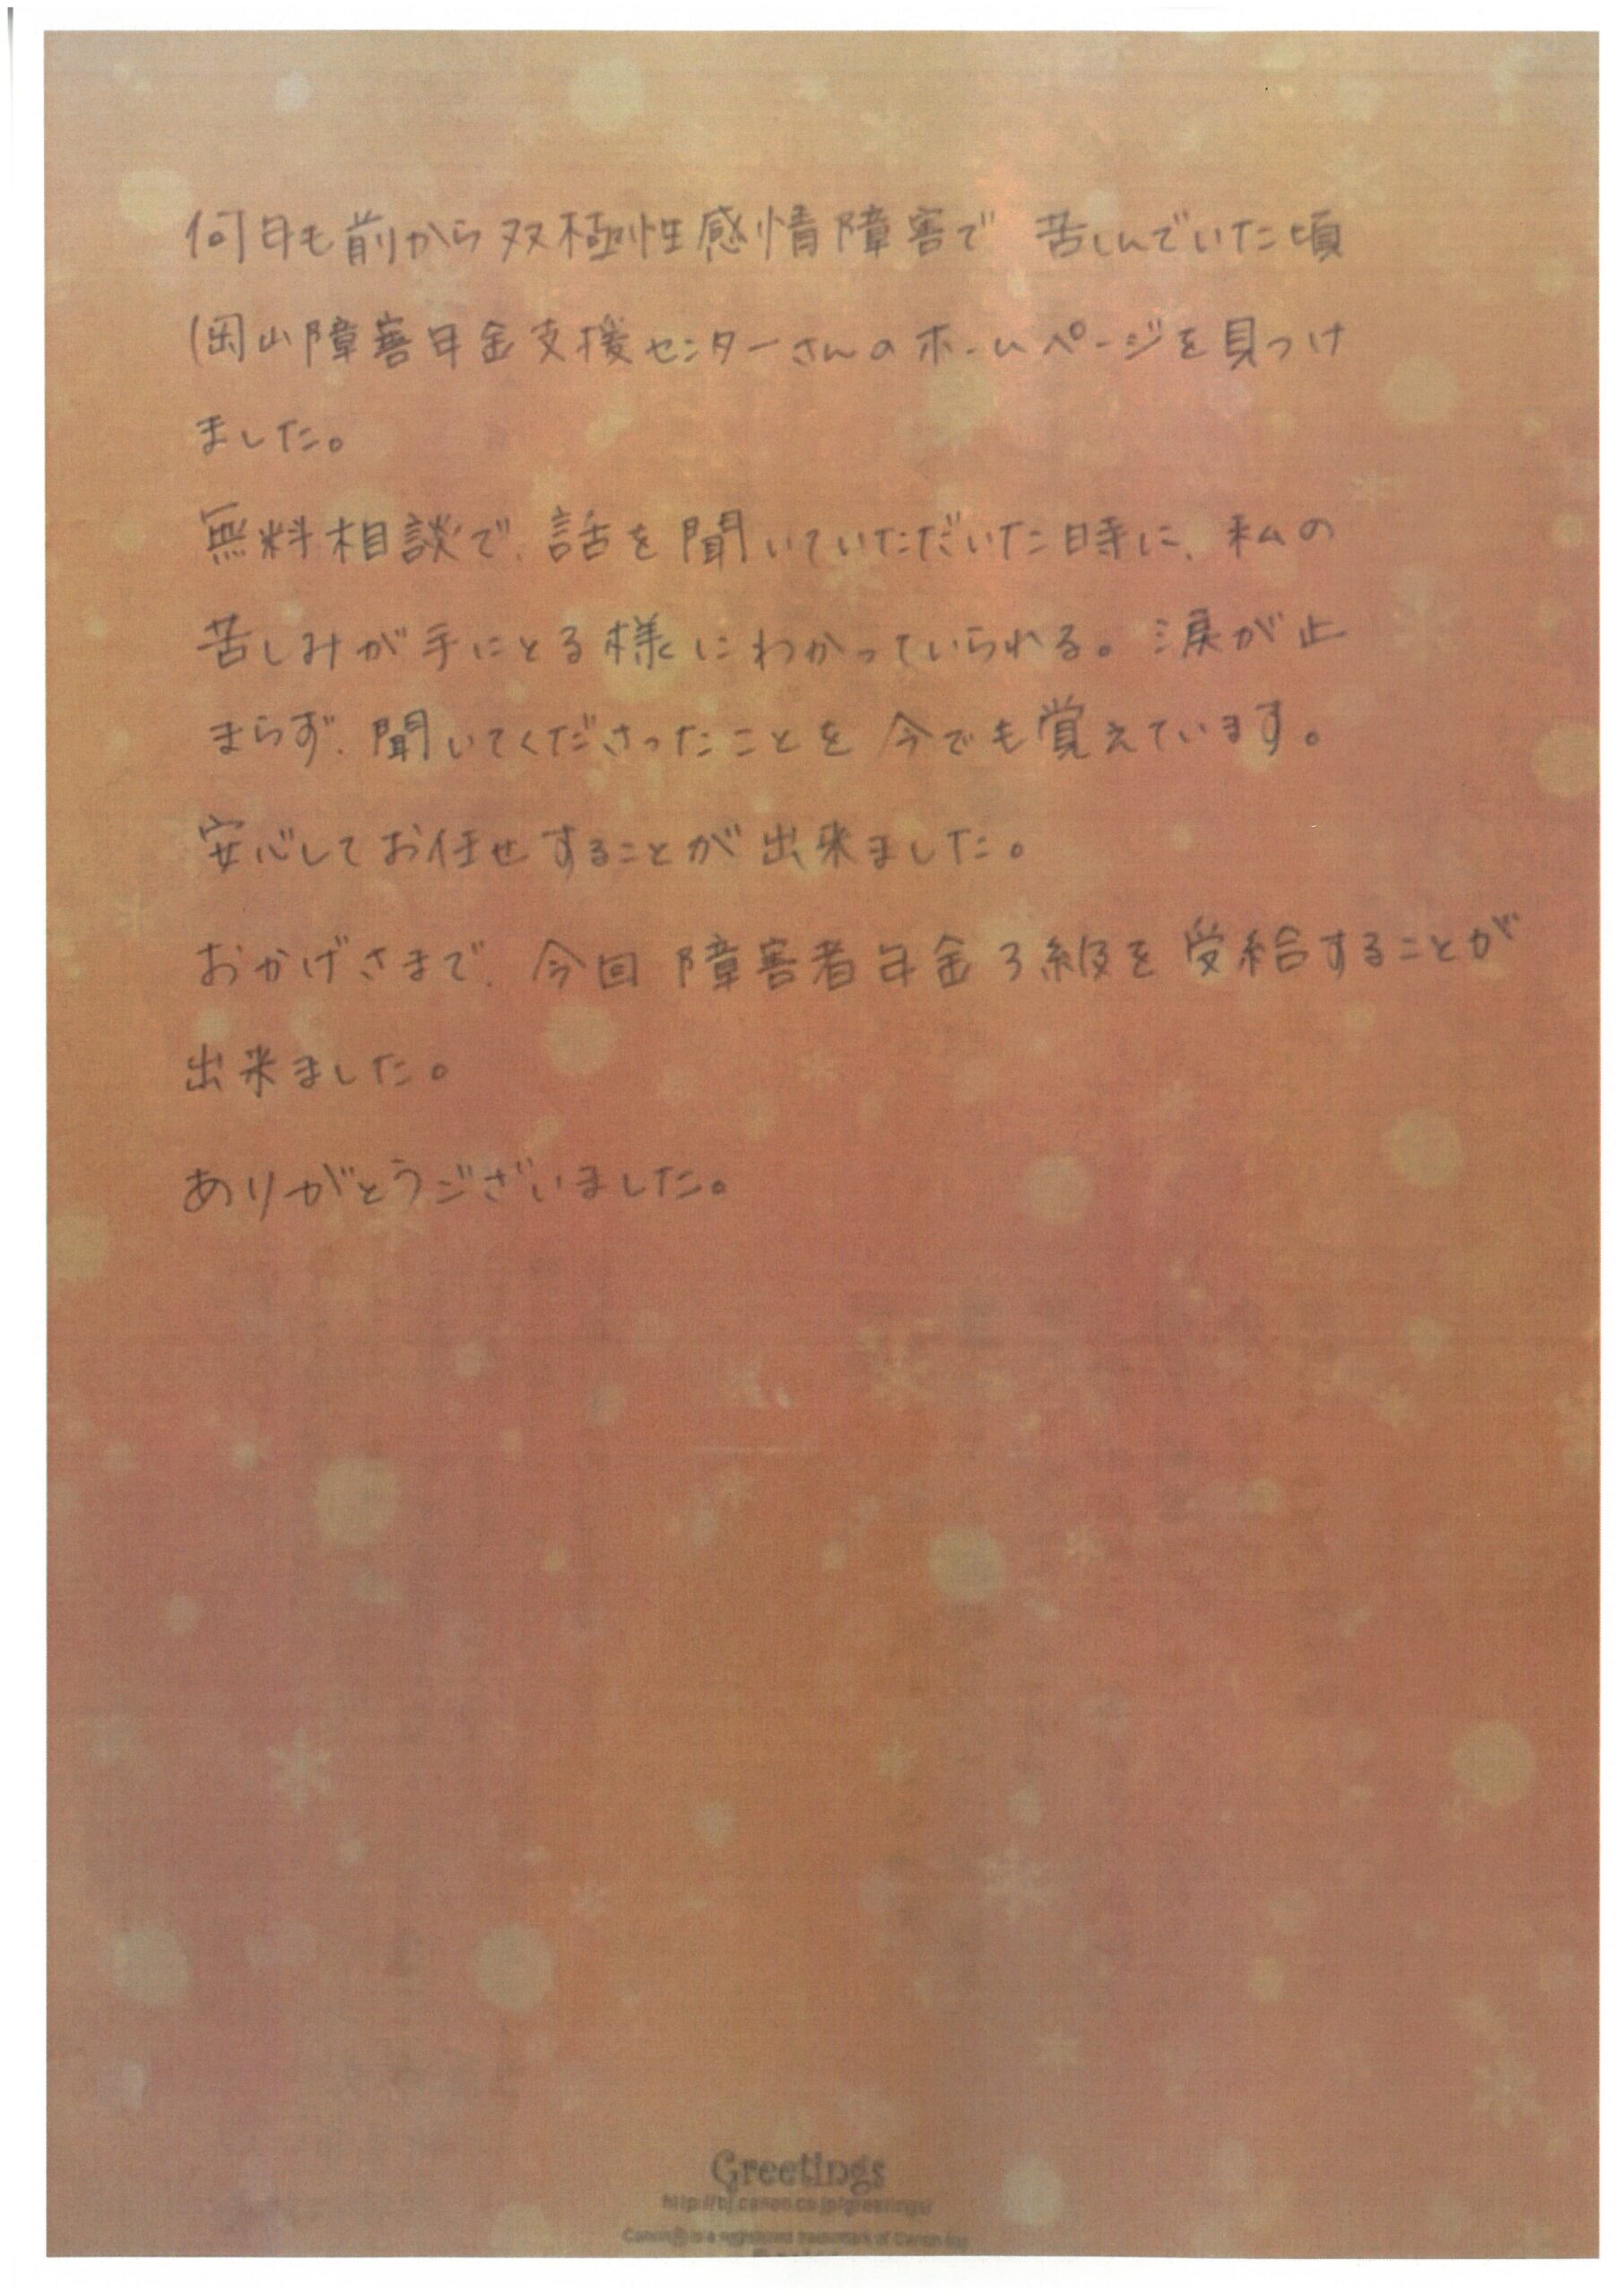 何年も前から双極性感情障害で 苦しんでいた頃
岡山障害年金支援センターさんのホームページを見つけ
ました。
無料相談で、話を聞いていただいた時に、私の
苦しみが手にとる様にわかっていられる。涙が止
まらず、聞いてくださったことを 今でも覚えています。
安心してお任せすることが出来ました。
おかげさまで、今回 障害者年金3級を受給することが
出来ました。
ありがとうございました。
Greetings
http://bj.canon.co.jp/greetings/
Canon is a registered trademark of Canon Inc.